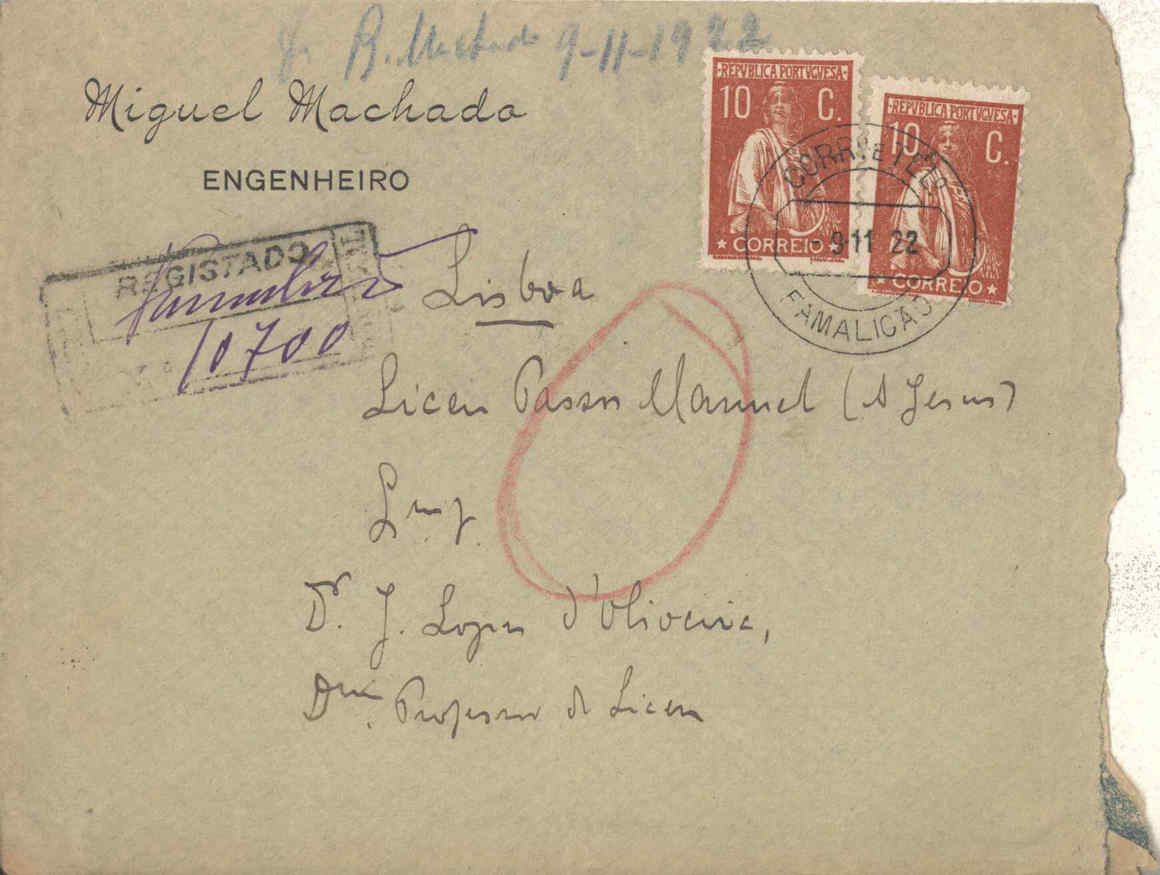 B. Machado 9-11-1922
Miguel Machado
ENGENHEIRO
REPVBLICA PORTVGVESA
10 C.
CORREIO
REPVBLICA PORTVGVESA
10 C.
CORREIO
CORR. E TEL.
-9-11 22
FAMALICAO
REGISTADO
10700
Lisboa
Liceu Passos Manuel (A Jesus)
Dr. J. Lopes d'Oliveira,
Dmo. Professor do Liceu